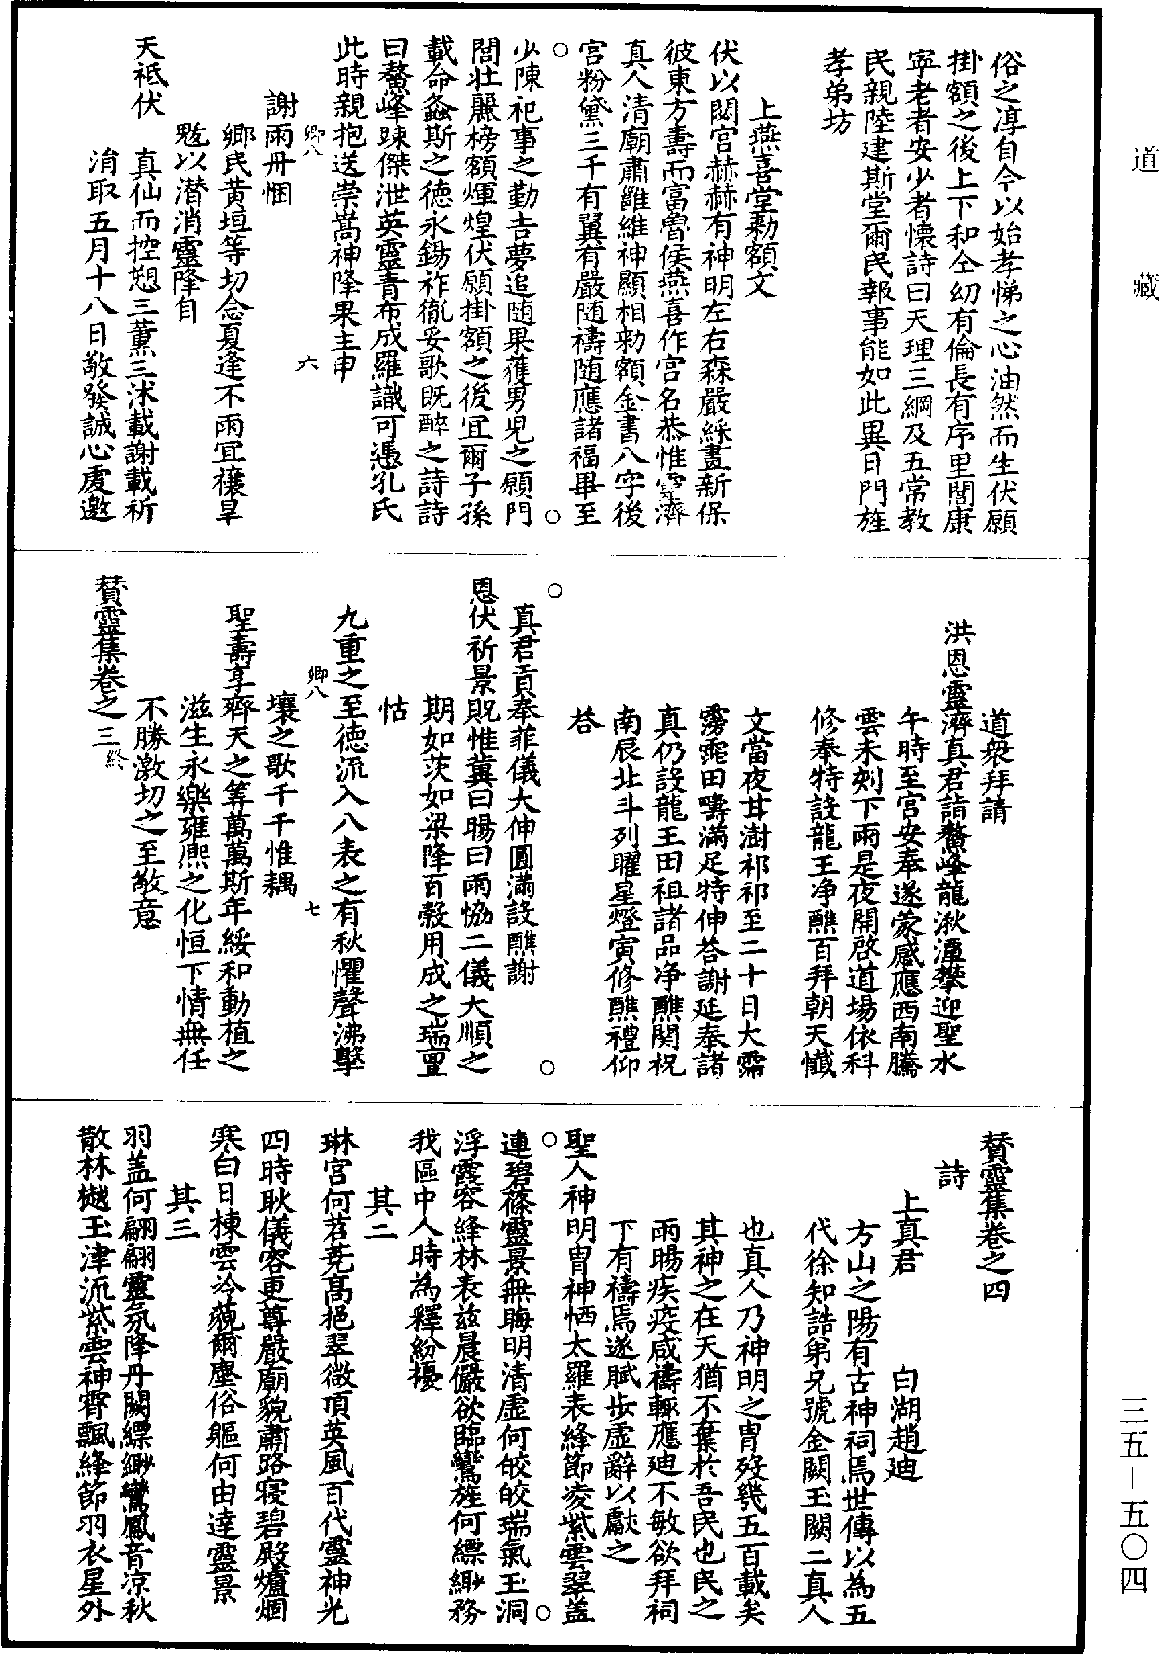 道藏
俗之淳自今以始孝悌之心油然而生伏願
掛額之後上下和仝幼有倫長有序里閭康
寧老者安少者懷詩曰天理三綱及五常教
民親陸建斯堂爾民報事能如此異日門旌
孝弟坊
上燕喜堂勑額文
伏以閟宮赫赫有神明左右森嚴綵畫新保
彼東方壽而富魯侯燕喜作宮名恭惟靈濟
真人清廟肅雝維神顯相勑額金書八字後
宮粉黛三千有翼有嚴隨禱隨應諸福畢至
少陳祀事之勤吉夢追随果獲男兒之願門
閭壯麗榜額煇煌伏願掛額之後宜爾子孫
載命螽斯之德永錫祚胤妥歌既醉之詩詩
曰鰲峰踈傑泄英靈青布成羅識可憑孔氏
此時親抱送崇嵩神降果主申
卿八　六
謝雨丹悃
鄉民黃垣等切念夏逢不雨宜禳旱
魃以潛消靈降自
天祗伏
真仙而控懇三薰三沐載謝載祈
涓取五月十八日敬發誠心虔邀
道衆拜請
洪恩靈濟真君詣鰲峰龍湫潭攀迎聖水
午時至宮安奉遂蒙感應西南騰
雲未刻下雨是夜開啓道場依科
修奉特設龍王净醮百拜朝天懺
文當夜甘澍祁祁至二十日大霈
霶霑田疇滿足特伸荅謝延奉諸
真仍設龍王田祖諸品净醮関祝
南辰北斗列曜星燈寅修醮禮仰
荅
真君貢奉菲儀大伸圓滿設醮謝
恩伏祈景貺惟冀曰暘曰雨恊二儀大順之
期如茨如梁降百穀用成之瑞亶
怙
九重之至德流入八表之有秋懼聲沸擊
卿八　七
壤之歌千千惟耦
聖壽享齊天之筭萬萬斯年綏和動植之
滋生永樂雍熈之化恒下情無任
不勝激切之至敬意
賛靈集卷之三終
賛靈集卷之四
詩
上真君　白湖趙廸
方山之陽有古神祠焉世傳以為五
代徐知誥弟兄號金闕玉闕二真人
也真人乃神明之胄歿幾五百載矣
其神之在天猶不棄於吾民也民之
雨暘疾疫咸禱輒應廸不敏欲拜祠
下有禱焉遂賦步虛辭以獻之
聖人神明胄神栖太羅表絳節凌紫雲翠蓋
連碧篠靈景無晦明清虛何皎皎瑞氣玉洞
浮霞容絳林表兹晨儼欲臨鸞旌何縹緲務
我區中人時為釋紛擾
其二
琳宮何苕蕘高挹翠微頂英風百代靈神光
四時耿儀容更尊嚴廟貌肅路寢碧殿爐烟
寒白日棟雲冷藐爾塵俗軀何由達靈景
其三
羽盖何翩翩靈氛降丹闕縹緲鸞鳳音凉秋
散林樾玉津流紫雲神霄飄絳節羽衣星外
三五－五〇四